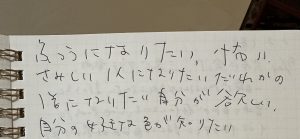 ふつうになりたい、怖い、
さみしい 人になりたいだれかの
様になりたい自分が欲しい、
自分の好きな色が知りたい